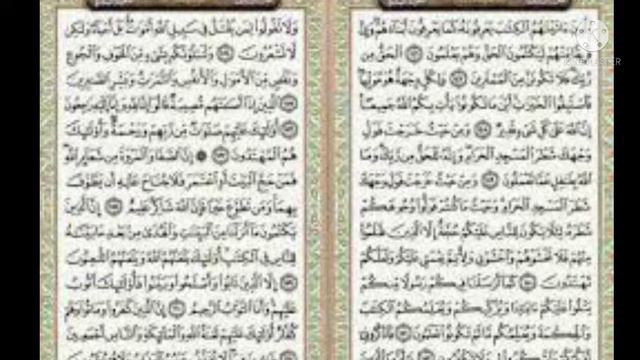 ءَاتَيْنَٰهُمُ ٱلْكِتَٰبَ يَعْرِفُونَهُۥ كَمَا يَعْرِفُونَ أَبْنَآءَهُمْ وَإِنَّ
مِّنْهُمْ لَيَكْتُمُونَ ٱلْحَقَّ وَهُمْ يَعْلَمُونَ ٱلْحَقُّ مِن
رَّبِّكَ فَلَا تَكُونَنَّ مِنَ ٱلْمُمْتَرِينَ وَلِكُلٍّ وِجْهَةٌ هُوَ مُوَلِّيهَا
فَٱسْتَبِقُوا۟ ٱلْخَيْرَٰتِ أَيْنَ مَا تَكُونُوا۟ يَأْتِ بِكُمُ ٱللَّهُ جَمِيعًا
إِنَّ ٱللَّهَ عَلَىٰ كُلِّ شَىْءٍ قَدِيرٌ وَمِنْ حَيْثُ خَرَجْتَ فَوَلِّ
وَجْهَكَ شَطْرَ ٱلْمَسْجِدِ ٱلْحَرَامِ وَإِنَّهُۥ لَلْحَقُّ مِن رَّبِّكَ وَمَا
ٱللَّهُ بِغَٰفِلٍ عَمَّا تَعْمَلُونَ وَمِنْ حَيْثُ خَرَجْتَ فَوَلِّ وَجْهَكَ
شَطْرَ ٱلْمَسْجِدِ ٱلْحَرَامِ وَحَيْثُ مَا كُنتُمْ فَوَلُّوا۟ وُجُوهَكُمْ
شَطْرَهُۥ لِئَلَّا يَكُونَ لِلنَّاسِ عَلَيْكُمْ حُجَّةٌ إِلَّا ٱلَّذِينَ ظَلَمُوا۟
مِنْهُمْ فَلَا تَخْشَوْهُمْ وَٱخْشَوْنِى وَلِأُتِمَّ نِعْمَتِى عَلَيْكُمْ وَلَعَلَّكُمْ
تَهْتَدُونَ كَمَآ أَرْسَلْنَا فِيكُمْ رَسُولًا مِّنكُمْ
يَتْلُوا۟ عَلَيْكُمْ ءَايَٰتِنَا وَيُزَكِّيكُمْ وَيُعَلِّمُكُمُ ٱلْكِتَٰبَ
وَٱلْحِكْمَةَ وَيُعَلِّمُكُم مَّا لَمْ تَكُونُوا۟ تَعْلَمُونَ فَٱذْكُرُونِىٓ
وَلَا تَقُولُوا۟ لِمَن يُقْتَلُ فِى سَبِيلِ ٱللَّهِ أَمْوَٰتٌۢ بَلْ أَحْيَآءٌ وَلَٰكِن
لَّا تَشْعُرُونَ وَلَنَبْلُوَنَّكُم بِشَىْءٍ مِّنَ ٱلْخَوْفِ وَٱلْجُوعِ
وَنَقْصٍ مِّنَ ٱلْأَمْوَٰلِ وَٱلْأَنفُسِ وَٱلثَّمَرَٰتِ وَبَشِّرِ ٱلصَّٰبِرِينَ
ٱلَّذِينَ إِذَآ أَصَٰبَتْهُم مُّصِيبَةٌ قَالُوٓا۟ إِنَّا لِلَّهِ وَإِنَّآ إِلَيْهِ رَٰجِعُونَ
أُو۟لَٰٓئِكَ عَلَيْهِمْ صَلَوَٰتٌ مِّن رَّبِّهِمْ وَرَحْمَةٌ وَأُو۟لَٰٓئِكَ
هُمُ ٱلْمُهْتَدُونَ إِنَّ ٱلصَّفَا وَٱلْمَرْوَةَ مِن شَعَآئِرِ ٱللَّهِ
فَمَنْ حَجَّ ٱلْبَيْتَ أَوِ ٱعْتَمَرَ فَلَا جُنَاحَ عَلَيْهِ أَن يَطَّوَّفَ
بِهِمَا وَمَن تَطَوَّعَ خَيْرًا فَإِنَّ ٱللَّهَ شَاكِرٌ عَلِيمٌ إِنَّ ٱلَّذِينَ
يَكْتُمُونَ مَآ أَنزَلْنَا مِنَ ٱلْبَيِّنَٰتِ وَٱلْهُدَىٰ مِنۢ بَعْدِ مَا بَيَّنَّٰهُ
لِلنَّاسِ فِى ٱلْكِتَٰبِ أُو۟لَٰٓئِكَ يَلْعَنُهُمُ ٱللَّهُ وَيَلْعَنُهُمُ ٱللَّٰعِنُونَ
إِلَّا ٱلَّذِينَ تَابُوا۟ وَأَصْلَحُوا۟ وَبَيَّنُوا۟ فَأُو۟لَٰٓئِكَ أَتُوبُ
عَلَيْهِمْ وَأَنَا ٱلتَّوَّابُ ٱلرَّحِيمُ إِنَّ ٱلَّذِينَ كَفَرُوا۟ وَمَاتُوا۟ وَهُمْ
كُفَّارٌ أُو۟لَٰٓئِكَ عَلَيْهِمْ لَعْنَةُ ٱللَّهِ وَٱلْمَلَٰٓئِكَةِ وَٱلنَّاسِ أَجْمَعِينَ